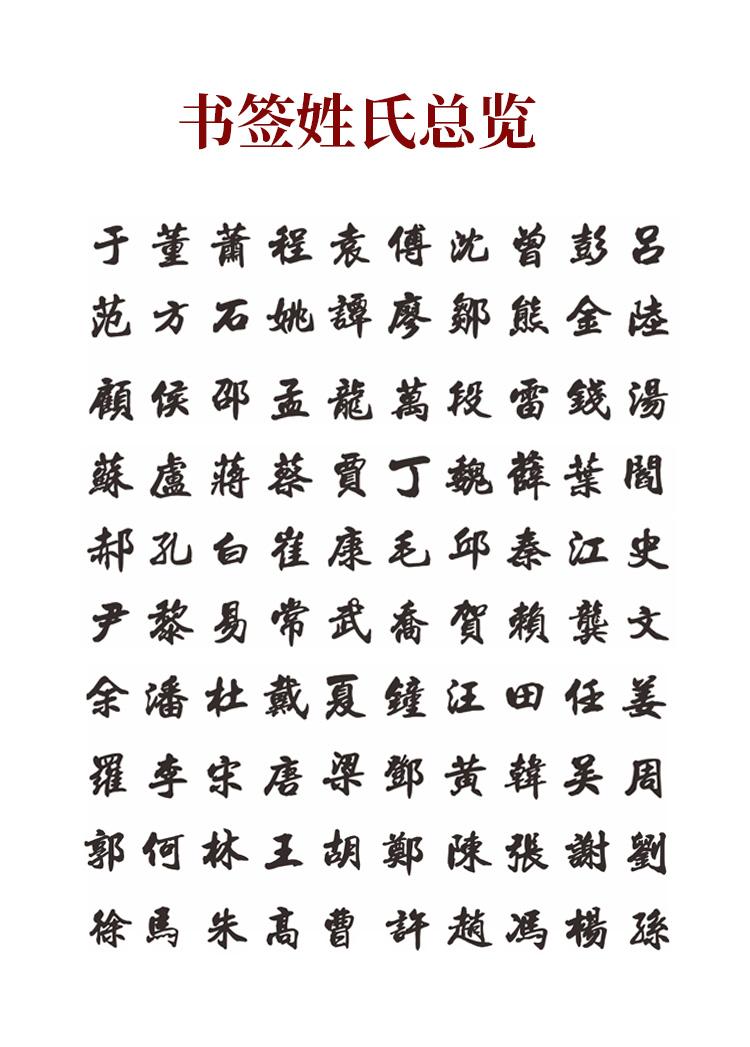 书签姓氏总览
于董蕭程袁傅沈曾彭吕
范方石姚譚廖鄒熊金陸
顧侯邵孟龍萬段雷錢湯
蘇盧蔣蔡賈丁魏薛葉閻
郝孔白崔康毛邱秦江史
尹黎易常武喬賀賴龔文
余潘杜戴夏鐘汪田任姜
羅李宋唐梁鄧黄韓吴周
郭何林王胡鄭陳張謝劉
徐馬朱高曹許趙馮楊孫